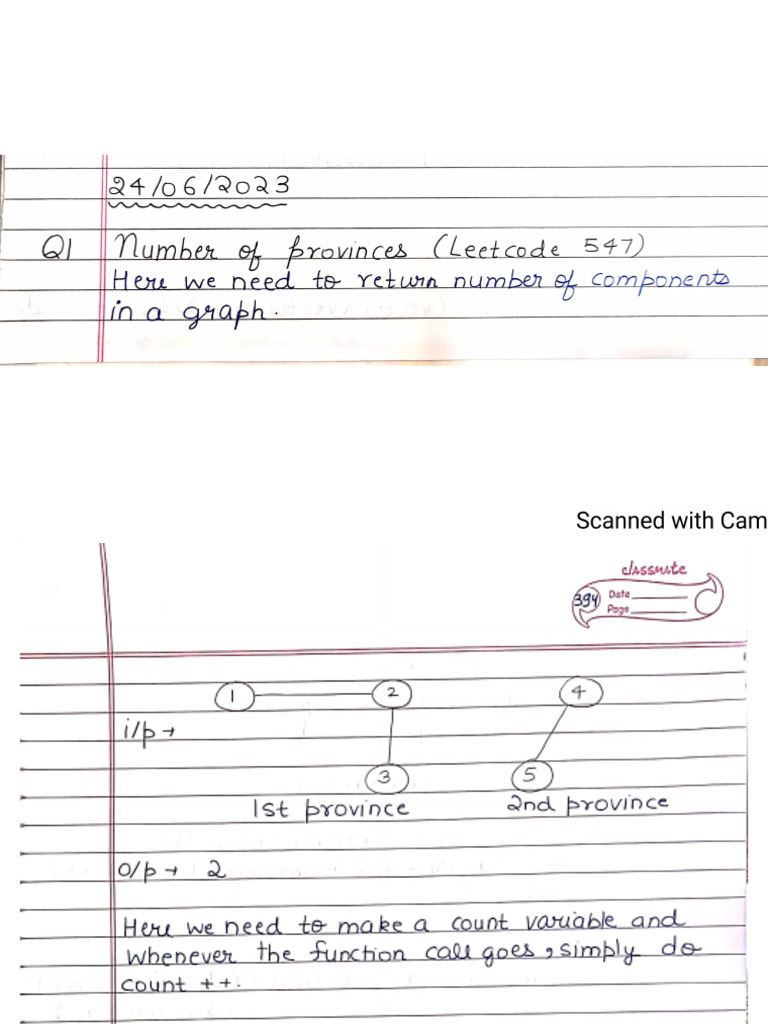 24/06/2023
Q1 Number of provinces (Leetcode 547)
Here we need to return number of components
in a graph.
Scanned with Cam
classmate
394 Date
Page
1 2 4
i/p →
3 5
1st province 2nd province
o/p → 2
Here we need to make a count variable and
whenever the function call goes, simply do
count ++.